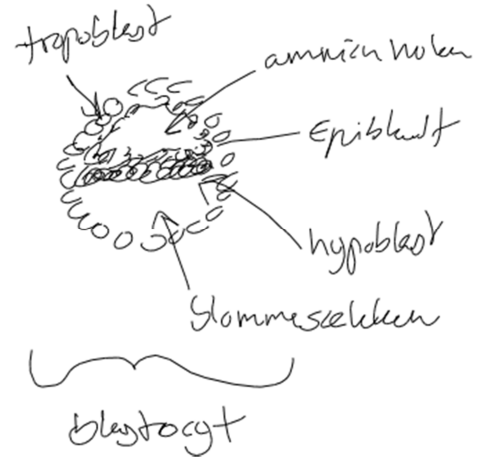 tropoblast
amnion holen
Epiblast
hypoblast
blommesækken
blastocyt